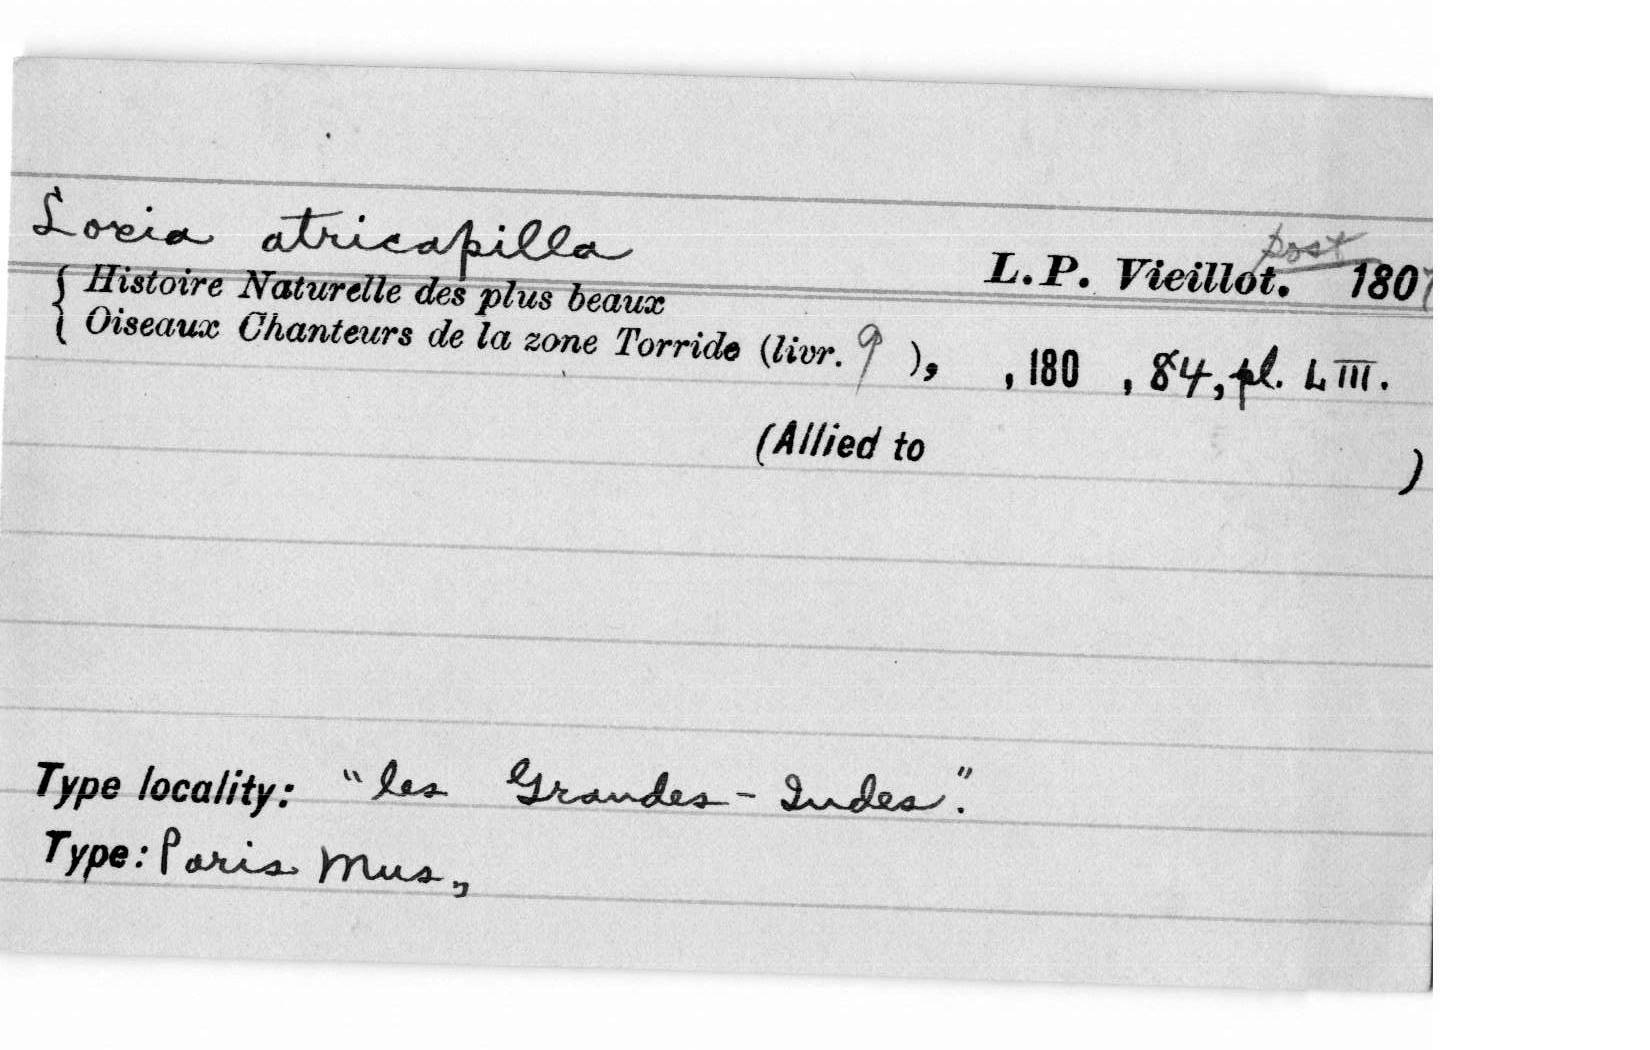 Loxia atricapilla
post
L. P. Vieillot. 1807
{ Histoire Naturelle des plus beaux
Oiseaux Chanteurs de la zone Torride (livr. 9 ), , 180 , 84, pl. LIII.
(Allied to )
Type locality: "les Grandes-Indes".
Type: Paris Mus.,